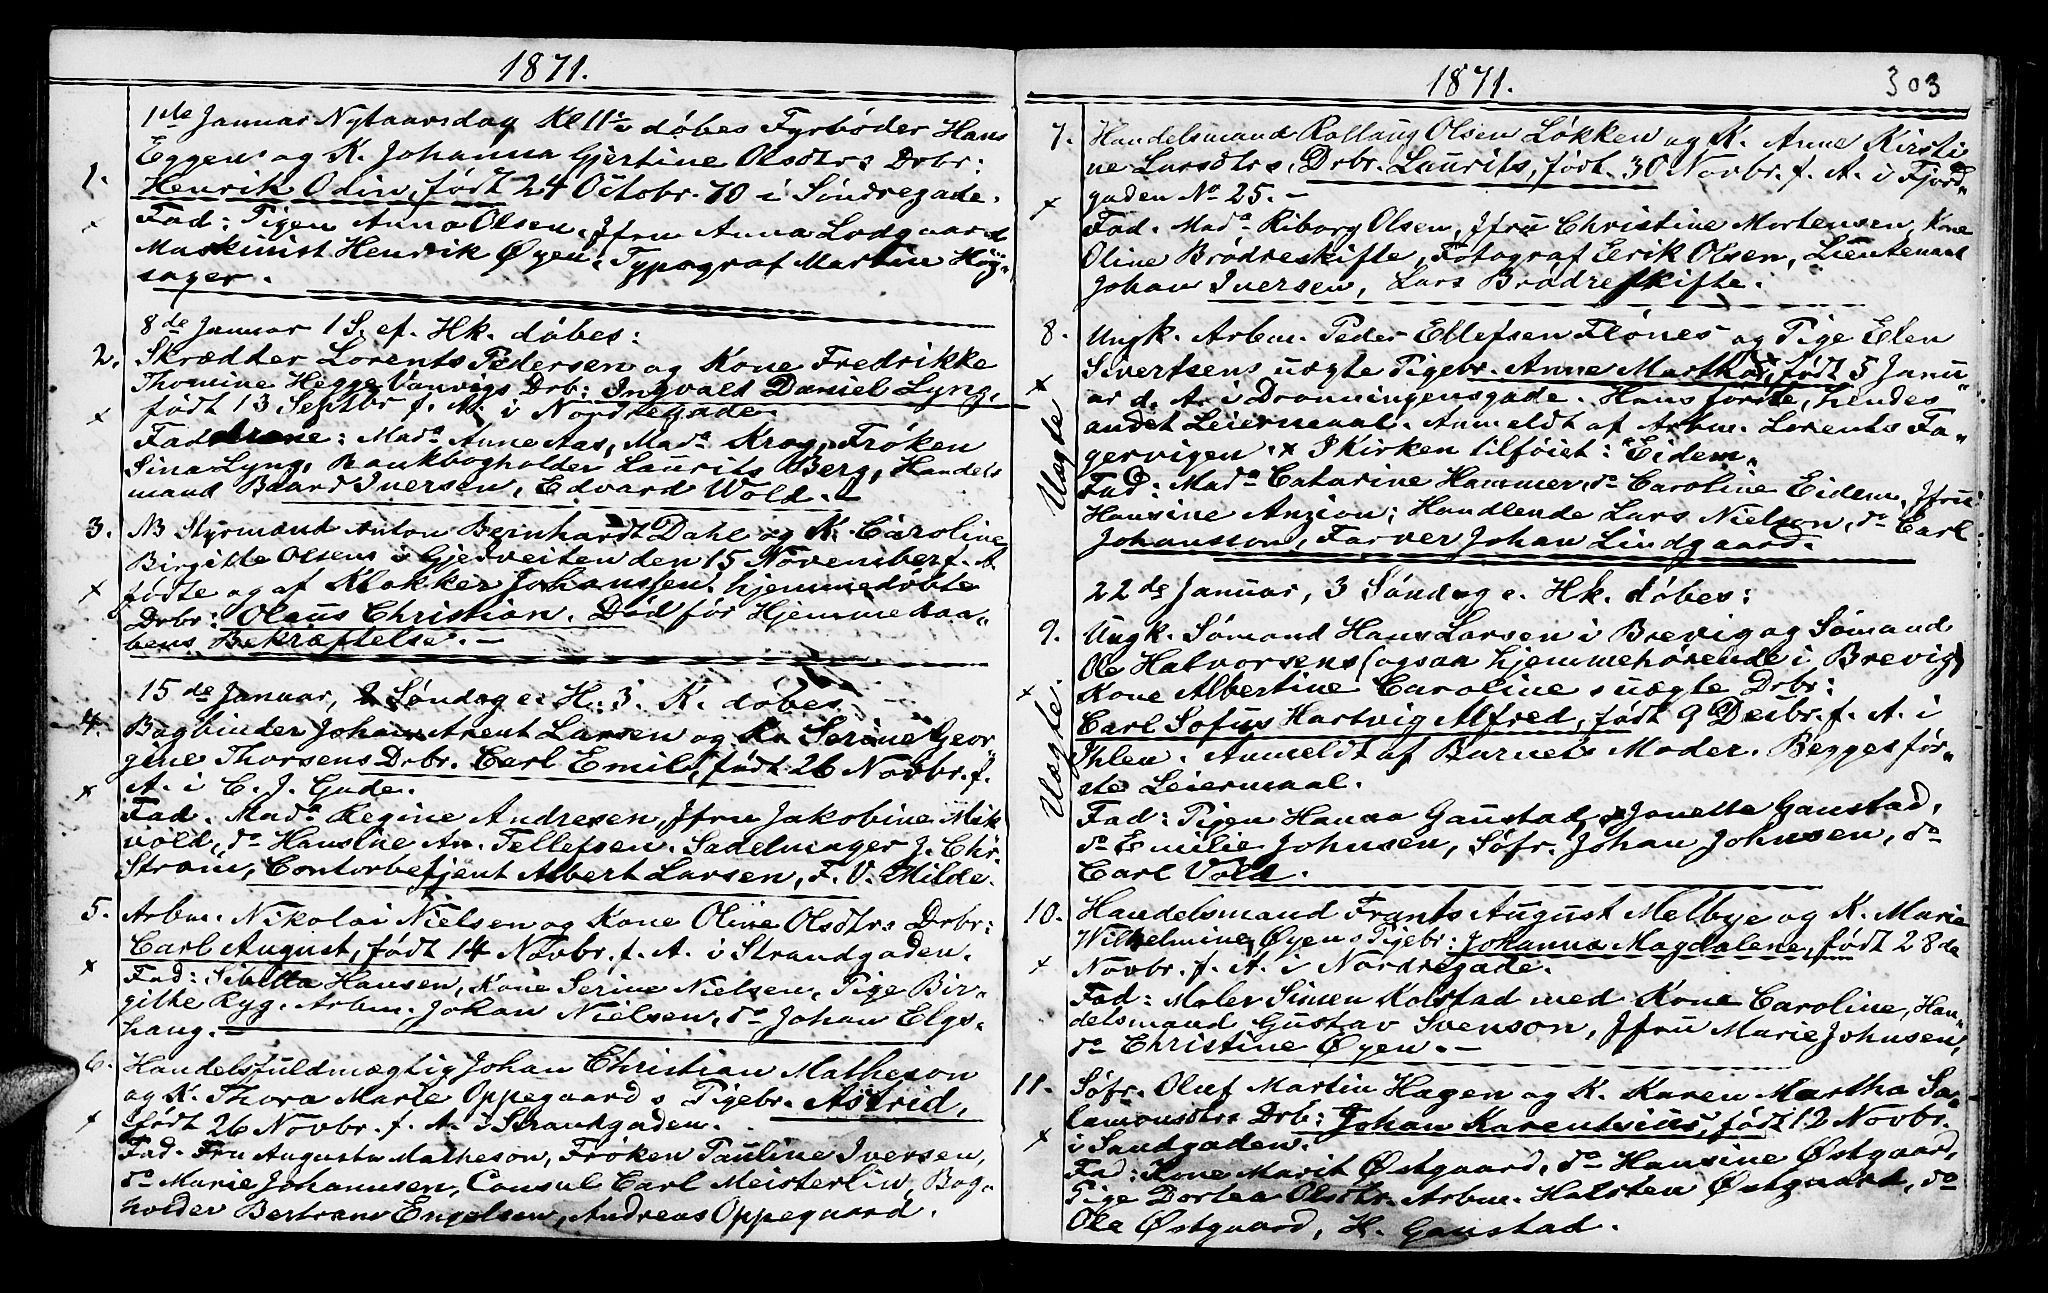 1871.
1ste Januar Nytaarsdag Kl 11½ døbes Fyrbøder Hans
Eggens og K. Johanna Gjertine Olsdtrs Drbr:
1. Henrik Odin, født 24 Octobr. 70 i Sindregade.
Fad: Pigen Anna Olsen, Jfru Anna Lodgaard
Maskinist Henrik Øyen, Typograf Martin Høy„
sager.
8de Januar 1 S. ef. Hk. døbes:
2. Skrædder Lorents Pedersen og Kone Fredrikke
Thomine Hegge Vanvigs Drb: Ingvald Daniel Lyng,
født 13 Septbr f. A. i Nordregade.
Faddrene: Mada Anne Aas, Mada Krog, Frøken
Sina Lyng, Bankbogholder Laurits Berg, Handels
mand Baard Iversen, Edvard Wold. –
3. NB Styrmand Anton Bernhardt Dahl og K. Caroline
Birgitte Olsens i Gjedveiten den 15 November f. A.
fødte og af Klokker Johanssen hjemmedøbte
Drbr: Olaus Christian. Død før Hjemmedaa„
bens Bekræftelse. –
15de Januar, 2 Søndag e. H. 3. K. døbes
4. Bogbinder Johan Arent Larsen og K. Serine Geor„
gine Thorsens Drbr. Carl Emil, født 26 Novbr. f.
A. i C. J. Gade.
Fad. Mada Regine Andresen, Jfru Jakobine Mik
vold, do Hansine An. Tellefsen. Sadelmager J. Chr.
Strøm, Contorbetjent Albert Larsen, F. V. Milde.
5. Arbm. Nikolai Nielsen og Kone Oline Olsdtrs Drbr:
Carl August, født 14 Novbr. f. A. i Strandgaden.
Fad: Sivilla Hansen, Kone Serine Nielsen, Pige Bir„
gitte Ryg. Arbm. Johan Nielsen, do Johan Elgs„
haug. –
6. Handelsfuldmægtig Johan Christian Matheson
og K. Thora Marie Oppegaards Pigebr. Astrid,
født 26 Novbr. f. A. i Strandgaden.
Fad. Fru Augusta Matheson, Frøken Pauline Iversen,
do Marie Johannsen, Consul Carl Meisterlin, Bog„
holder Bertram Engelsen, Andreas Oppegaard.
1871.
303
7. Handelsmand Rollaug Olsen Løkken og K. Anne Kirsti
ne Larsdtrs Drbr. Laurits, født 30 Novbr. f. A. i Fjord„
gaden No 25. –
Fad. Mada Riborg Olsen, Jfru Christine Mortensen, Kone
Oline Brødreskifte, Fotograf Eerik Olsen, Lieutenant
Johan Iversen, Lars Brødreskifte.
8. Ungk. Arbm. Peder Ellefsen Flønes og Pige Elen
Sivertsens uægte Pigebr. Anne Martha, født 5 Janu„
ar d. A. i Dronningensgade. Hans første, hendes
andet Leiermaal. Anmeldt af Arbm. Lorents Fa„
gervigen. × I Kirken tilføiet: Eidem„
Uægte
Fad: Mada Catarine Hammer, do Caroline Eidem, Jfru:
Hansine Anzion; Handlende Lars Nielsen, do Carl
Johansson, Farver Johan Lindgaard.
22de Januar, 3 Søndag e. Hk. døbes:
9. Ungk. Sømand Hans Larsen i Brevig og Sømand
Ole Halvorsens (ogsaa hjemmehørende i Brevig)
Kone Albertine Carolines uægte Drbr:
Carl Sofus Hartvig Alfred, født 9 Decbr. f. A. i
Ihlen. Anmeldt af Barnets Moder. Begges før„
ste Leiermaal.
Uægte.
Fad: Pigen Hanna Gaustad, Janetta Gaustad,
do Emilie Johnsen, Søfr. Johan Johnsen, do
Carl Vold.
10. Handelsmand Frants August Melbye og K. Marie
Wilhelmine Øyens Pigebr: Johanna Magdalene, født 28de
Novbr. f. A. i Nordregade.
Fad: Maler Simen Kolstad med Kone Caroline, Han„
delsmand Gustav Svenson, Jfru Marie Johnsen,
do Christine Øyen. –
11. Søfr. Oluf Martin Hagen og K. Karen Martha Sa„
lamonsdtrs Drb: Johan Karentsius, født 12 Novbr.
i Sandgaden.
Fad: Kone Marit Østgaard, do Hansine Østgaard,
Pige Dortea Olsdtr. Arbm. Halsten Østgaard, do
Ole Østgaard, H. Gaustad.